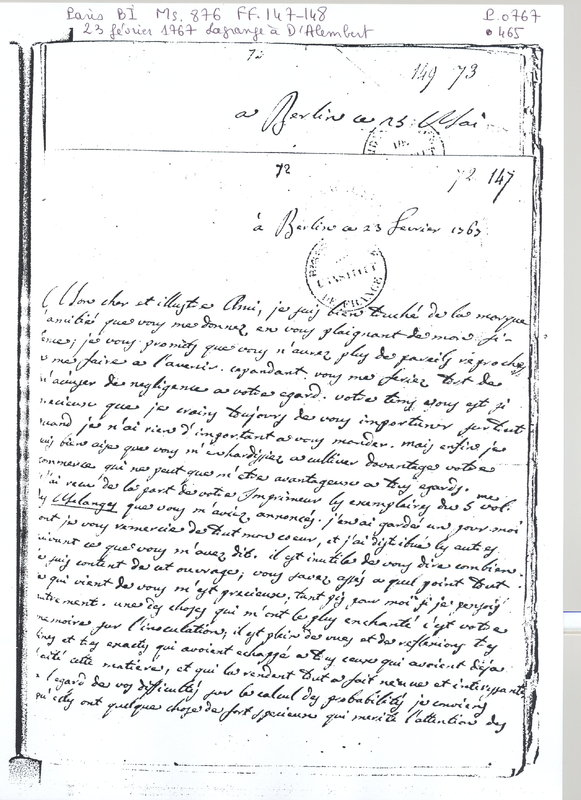 Paris BI Ms. 876 FF. 147-148
P. 0767
23 février 1767 Lagrange à D'Alembert
• 465
72
149 73
a Berlin ce 25 Mai
72
72. 147
à Berlin ce 23 fevrier 1767
L'INSTITUT
DE FRANCE
Mon cher et illustre Ami, je suis bien touché de la marque
d'amitié que vous me donnez en vous plaignant de mon si-
lence; je vous promets que vous n'aurez plus de pareils reproches
a me faire a l'avenir. cependant vous me feriez tort de
m'accuser de negligence a votre egard. votre tems vous est si
precieux que je crains toujours de vous importuner surtout
quand je n'ai rien d'important a vous mander. mais enfin je
suis bien aise que vous m'enhardissiez a cultiver davantage votre
commerce qui ne peut que m'etre avantageux a tous egards.
j'ai recu de la part de votre Imprimeur les exemplaires du 5 vol.
des Melanges que vous m'aviez annoncés. j'en ai gardé un pour moi
dont je vous remercie de tout mon coeur, et j'ai distribué les autres
suivant ce que vous m'avez dit. il est inutile de vous dire combien
je suis content de cet ouvrage; vous savez assés a quel point tout
ce qui vient de vous m'est precieux, tant pis pour moi si je pensois
autrement. une des choses qui m'ont le plus enchanté c'est votre
memoire sur l'inoculation, il est plein de vues et de reflexions tres
fines et tres exactes qui avoient echappé a tous ceux qui avoient deja
traité cette matiere, et qui la rendent tout a fait neuve et interessante
a l'egard de vos difficultés sur le calcul des probabilités je conviens
qu'elles ont quelque chose de fort specieux qui merite l'attention des